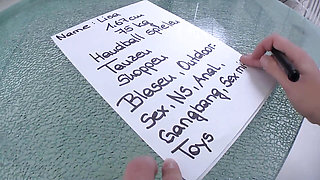 Name: Lisa
1.67cm
75 kg
Handball spielen
Tanzen
Shoppen
Blasen, Outdoor
Sex, NS, Anal,
Gangbang, Sex mi
Toys